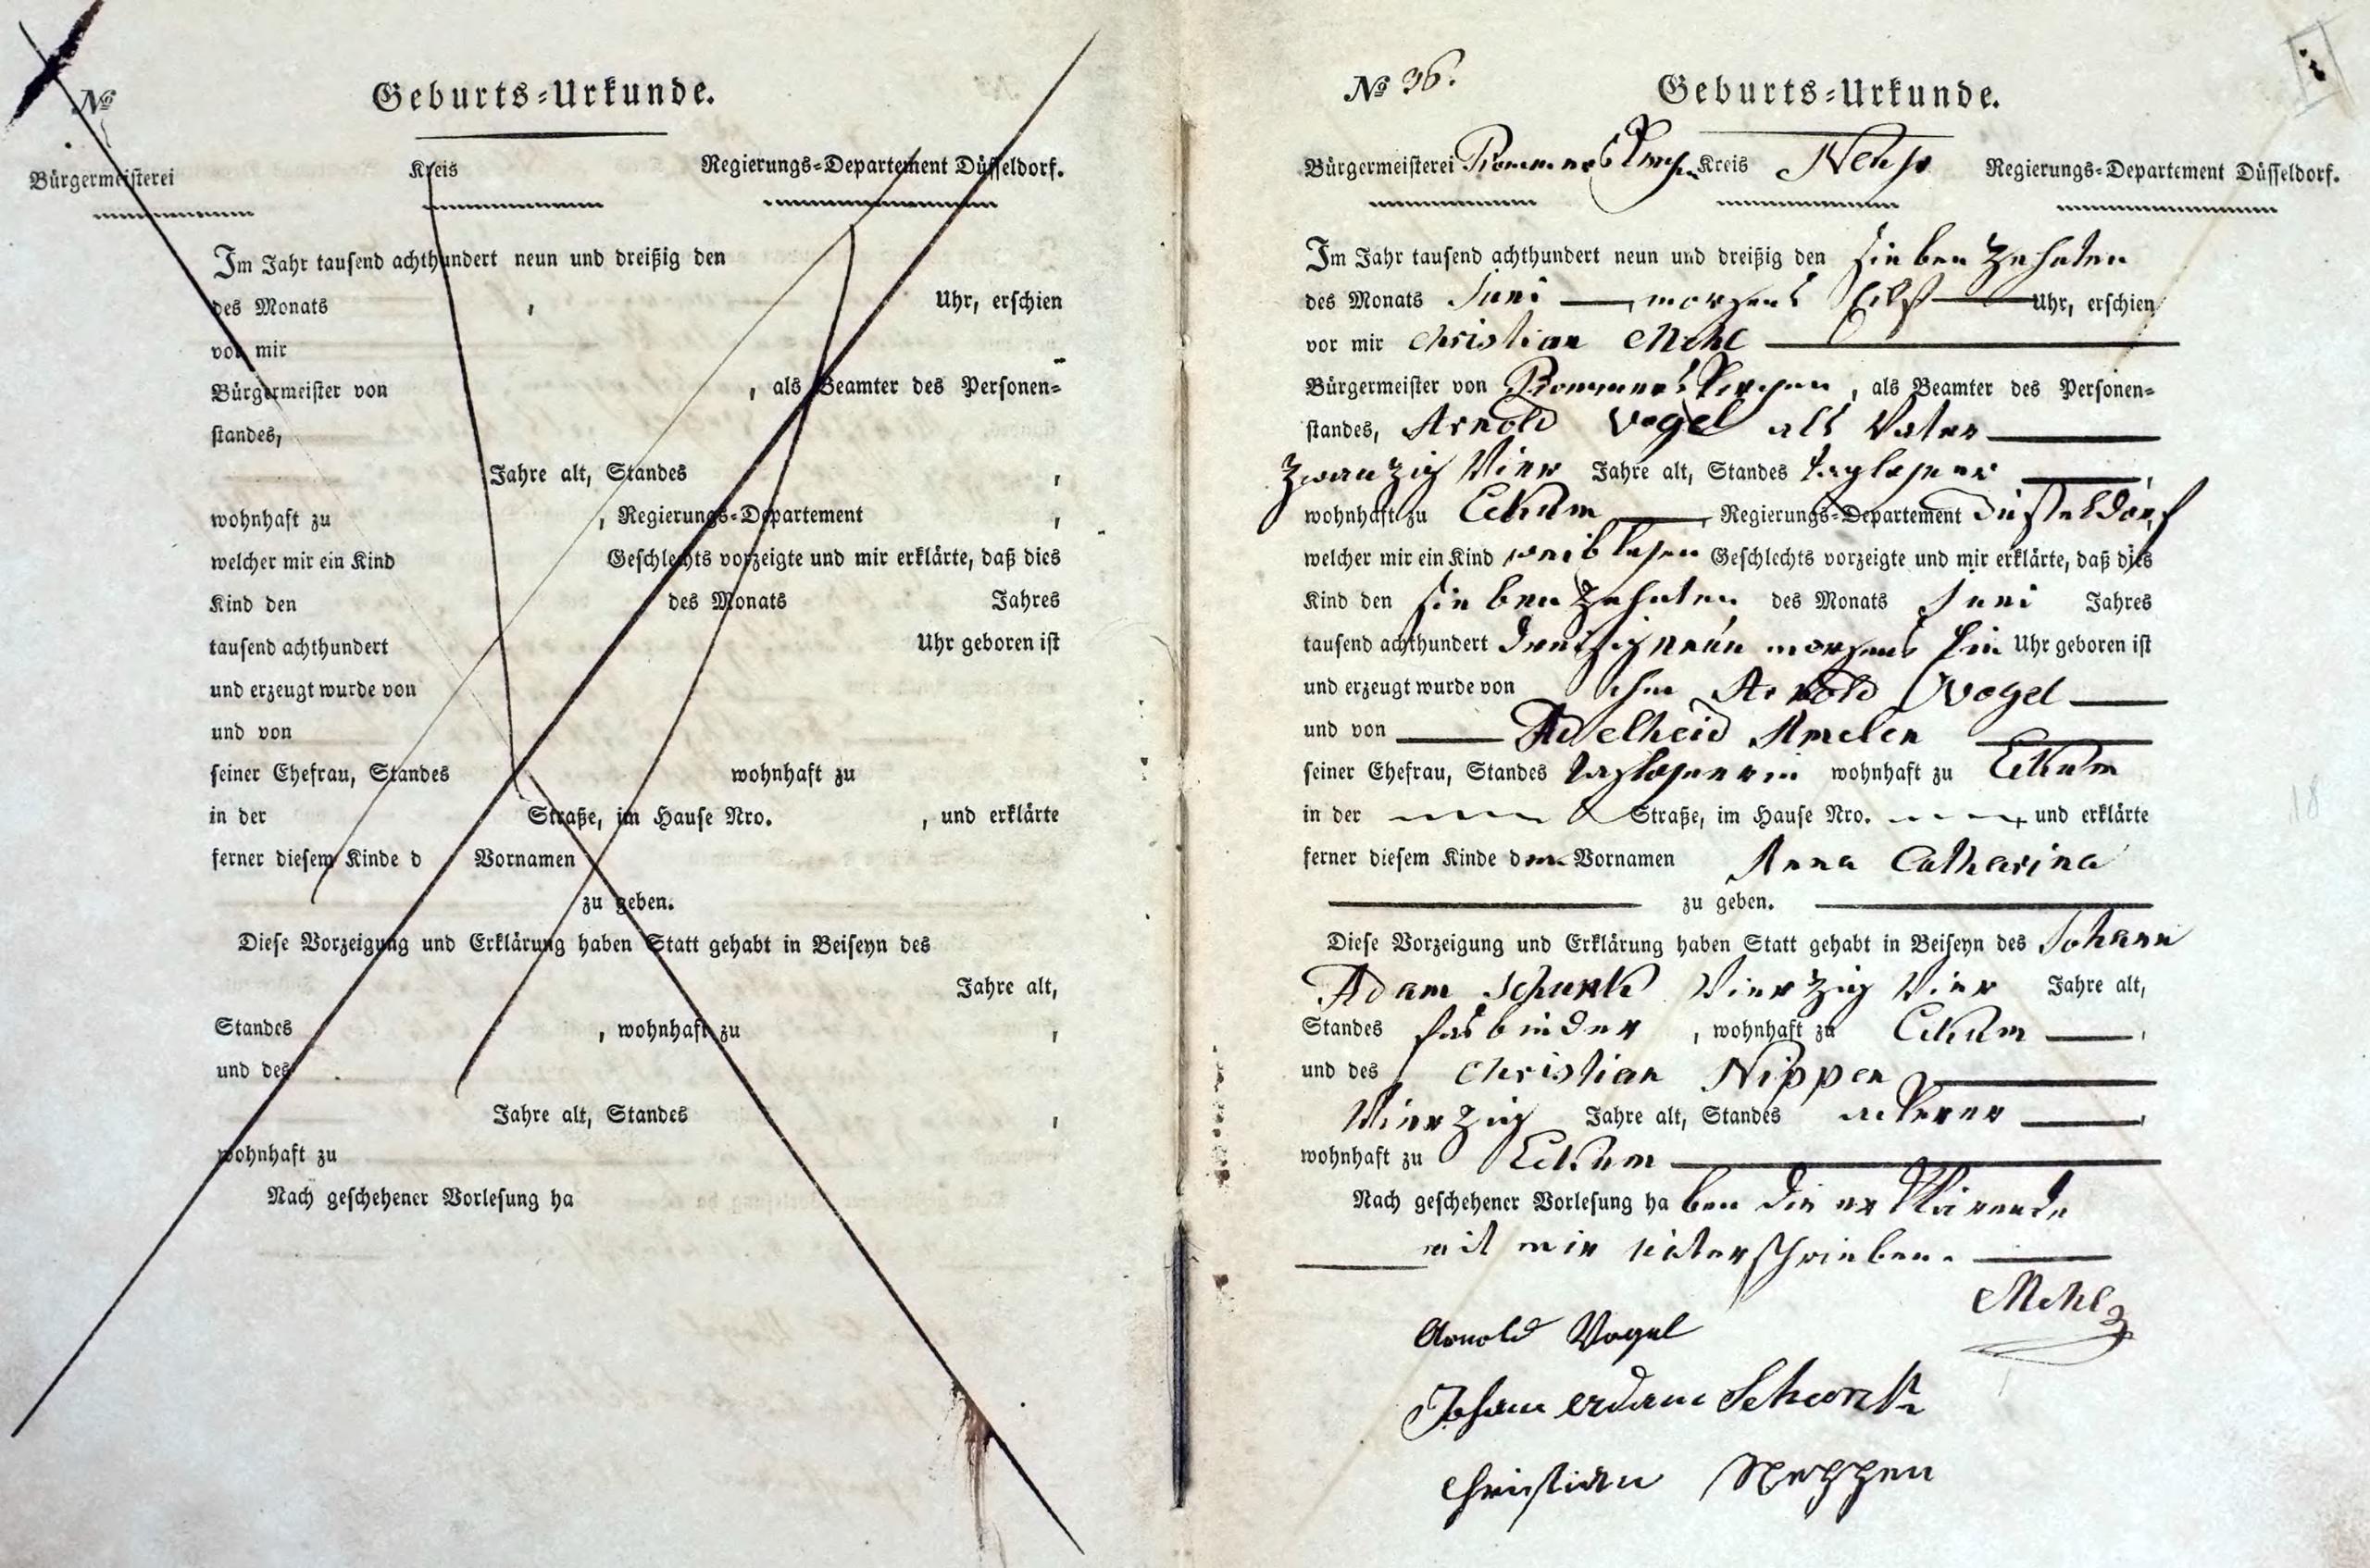 №
Geburts-Urkunde.
Bürgermeisterei Kreis Regierungs-Departement Düsseldorf.
Im Jahr tausend achthundert neun und dreißig den
des Monats , Uhr, erschien
vor mir
Bürgermeister von , als Beamter des Personen-
standes,
Jahre alt, Standes ,
wohnhaft zu , Regierungs-Departement ,
welcher mir ein Kind Geschlechts vorzeigte und mir erklärte, daß dies
Kind den des Monats Jahres
tausend achthundert Uhr geboren ist
und erzeugt wurde von
und von
seiner Ehefrau, Standes wohnhaft zu
in der Straße, im Hause Nro. , und erklärte
ferner diesem Kinde d Vornamen
zu geben.
Diese Vorzeigung und Erklärung haben Statt gehabt in Beiseyn des
Jahre alt,
Standes , wohnhaft zu ,
und des
Jahre alt, Standes ,
wohnhaft zu
Nach geschehener Vorlesung ha
№ 36.
Geburts-Urkunde.
Bürgermeisterei Kreis Neuss Regierungs-Departement Düsseldorf.
Im Jahr tausend achthundert neun und dreißig den sieben zehnten
des Monats Juni , morgens Eilf Uhr, erschien
vor mir Christian Mehl
Bürgermeister von Rommerskirchen , als Beamter des Personen-
standes, Arnold Vogel als Vater
zwanzig Vier Jahre alt, Standes taglohner
wohnhaft zu Eckum , Regierungs-Departement Düsseldorf
welcher mir ein Kind weiblichen Geschlechts vorzeigte und mir erklärte, daß dies
Kind den sieben zehnten des Monats Juni Jahres
tausend achthundert dreißig neün morgens Uhr geboren ist
und erzeugt wurde von ihm Arnold Vogel
und von Adelheid Amelen
seiner Ehefrau, Standes taglohnerin wohnhaft zu Eckum
in der Straße, im Hause Nro. , und erklärte
ferner diesem Kinde den Vornamen Anna Catharina
zu geben.
Diese Vorzeigung und Erklärung haben Statt gehabt in Beiseyn des Johann
Adam Schunk Vierzig Vier Jahre alt,
Standes fasbinder , wohnhaft zu Eckum ,
und des Christian Nippen
Vierzig Jahre alt, Standes ackerer ,
wohnhaft zu Eckum
Nach geschehener Vorlesung haben die erklärende
mit mir unterschrieben.
Mehl
Arnold Vogel
Johann Adam
Christian
18